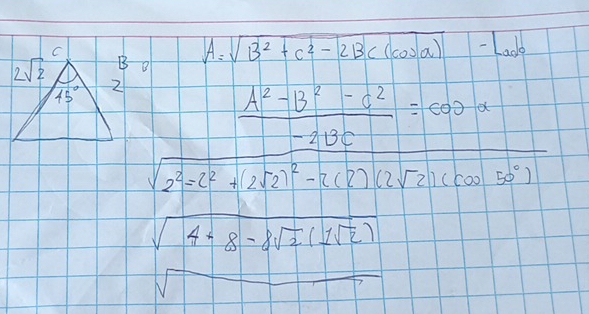 C
2√2
45°
B
2
A = √B² + c² - 2BC (cos α) - Lado
A² - B² - c² / -2BC = cos α
√2² = 2² + (2√2)² - 2(2)(2√2)(cos 50°)
√4 + 8 - 8√2 (1√2)
√